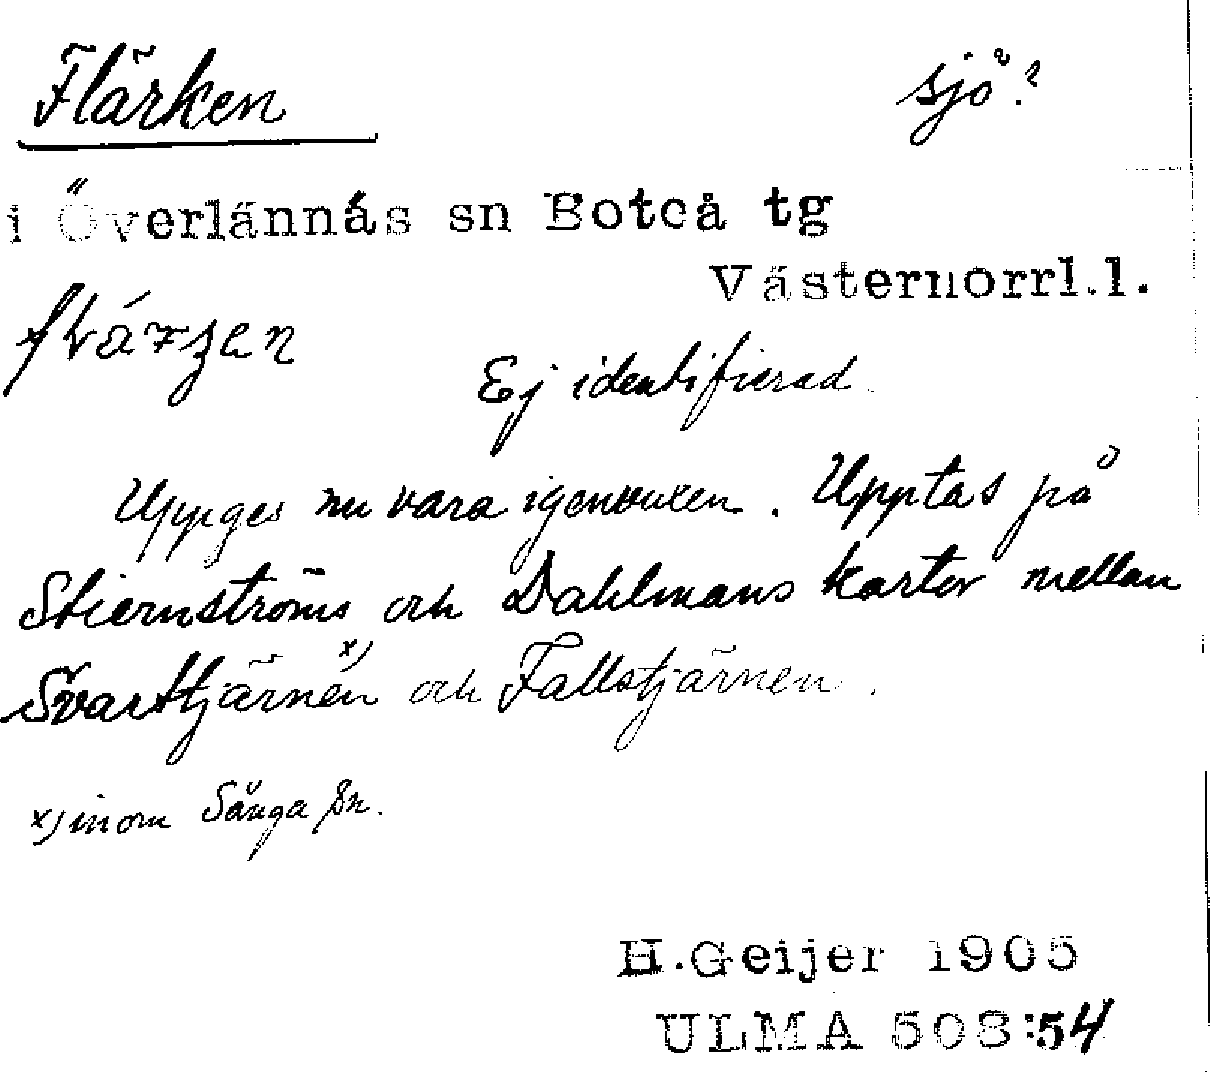 Flärken sjö?
i Överlännäs sn Boteå tg
Västernorrl.l.
Ej identifierad.
Uppges nu vara igenvuxen. Upptas på
Stiernströms och Dahlmans kartor mellan
Svarttjärnen x) och Fallstjärnen.
x) inom Sånga sn.
H.Geijer 1905
ULMA 508:54